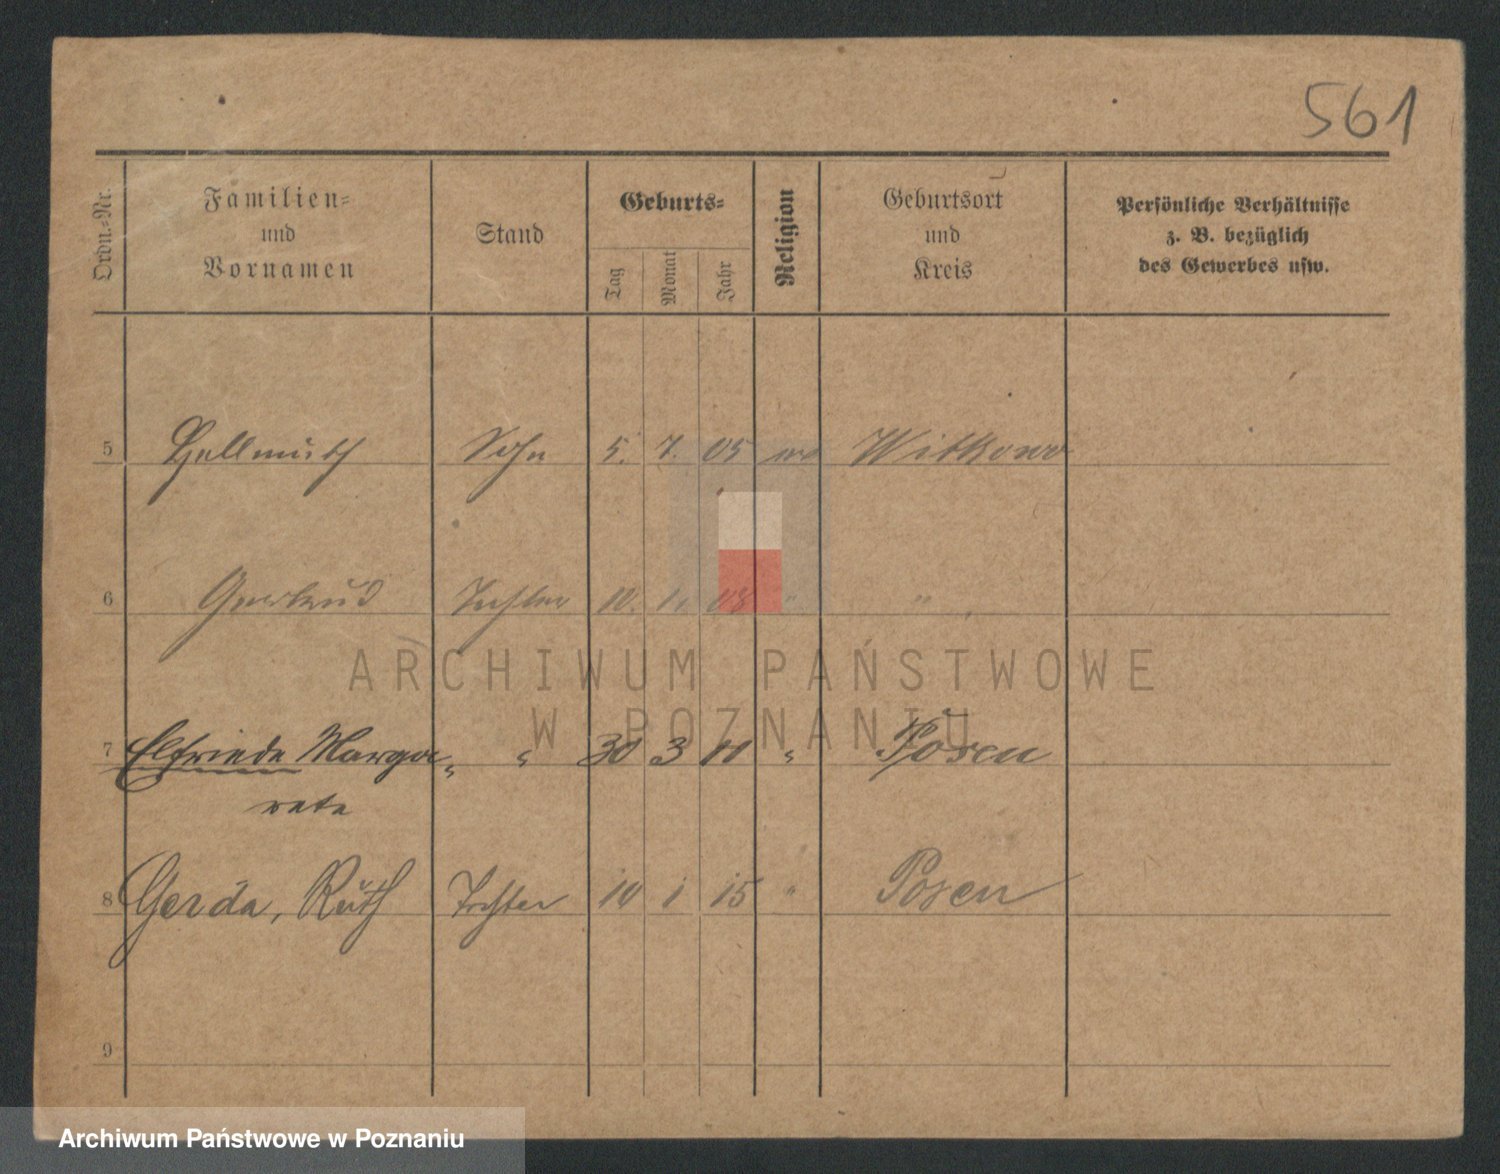 561
Ordn.=Nr.
Familien=
und
Vornamen
Stand
Geburts=
Tag
Monat
Jahr
Religion
Geburtsort
und
Kreis
Persönliche Verhältnisse
z. B. bezüglich
des Gewerbes usw.
5 Hellmuth Sohn 5. 7. 05 Witkowo
6 Gertrud Tochter 10. 08 " "
7 Elfriede Marga= " 30 3 11 " Posen
rete
8 Gerda, Ruth Tochter 10 1 15 " Posen
9
ARCHIWUM PAŃSTWOWE
W POZNANIU
Archiwum Państwowe w Poznaniu